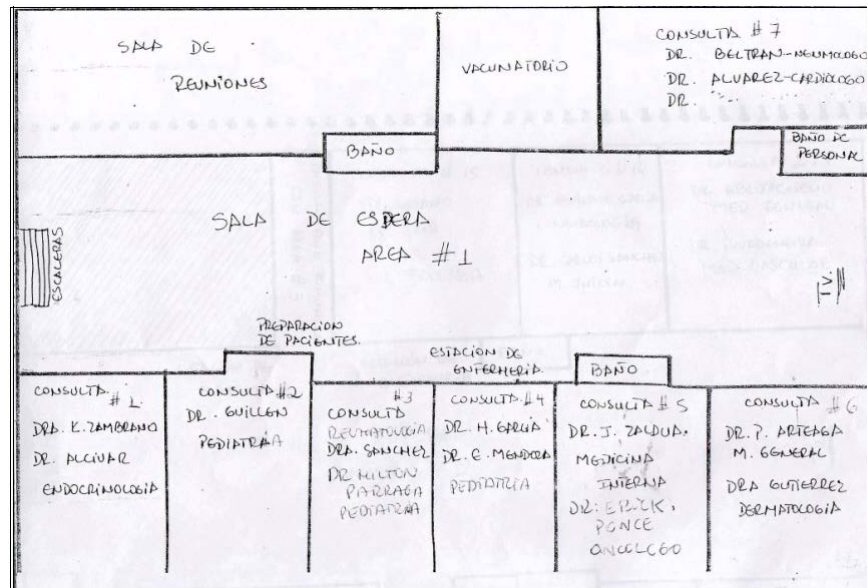 SALA DE
REUNIONES
VACUNATORIO
CONSULTA #7
DR. BELTRAN-NEUMOLOGO
DR. ALVAREZ-CARDIOLOGO
DR.
BAÑO
BAÑO DE
PERSONAL
SALA DE ESPERA
AREA #1
ESCALERAS
TV
PREPARACION
DE PACIENTES.
ESTACION DE
ENFERMERIA
BAÑO
CONSULTA
#1
DRA. K. ZAMBRANO
DR. ALCIVAR
ENDOCRINOLOGIA
CONSULTA #2
DR. GUILLEN
PEDIATRIA
#3
CONSULTA
REUMATOLOGIA
DRA. SANCHEZ
DR MILTON
PARRAGA
PEDIATRIA
CONSULTA #4
DR. H. GARCIA
DR. E. MENDOZA
PEDIATRIA
CONSULTA #5
DR. J. ZALDUA.
MEDICINA
INTERNA
DR: ERICK.
PONCE
ONCOLOGO
CONSULTA #6
DR. P. ARTEAGA
M. GENERAL
DRA GUTIERREZ
DERMATOLOGIA